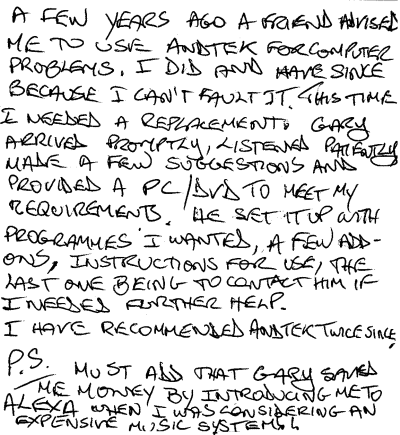 A FEW YEARS AGO A FRIEND ADVISED
ME TO USE ANDTEK FOR COMPUTER
PROBLEMS. I DID AND HAVE SINCE
BECAUSE I CAN'T FAULT IT. THIS TIME
I NEEDED A REPLACEMENT. GARY
ARRIVED PROMPTLY, LISTENED PATIENTLY
MADE A FEW SUGGESTIONS AND
PROVIDED A PC/DVD TO MEET MY
REQUIREMENTS. HE SET IT UP WITH
PROGRAMMES I WANTED, A FEW ADD-
ONS, INSTRUCTIONS FOR USE, THE
LAST ONE BEING TO CONTACT HIM IF
I NEEDED FURTHER HELP.
I HAVE RECOMMENDED ANDTEK TWICE SINCE.
P.S. MUST ADD THAT GARY SAVED
ME MONEY BY INTRODUCING ME TO
ALEXA WHEN I WAS CONSIDERING AN
EXPENSIVE MUSIC SYSTEM!